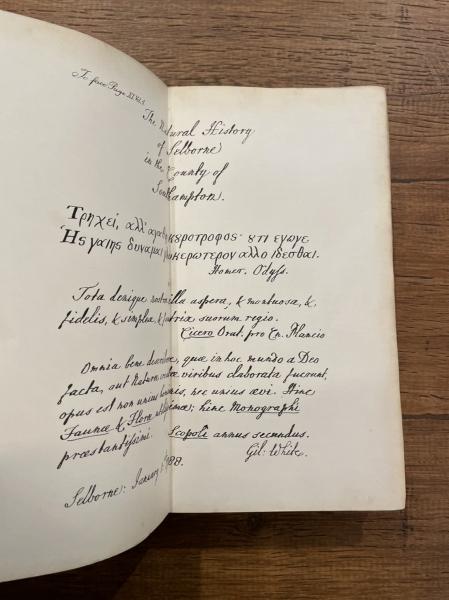 To face Page
The Natural History
of Selborne
in the County of
Southampton.
Τρηχεί, αλλ' αγαθη κȣροτροφος· ȣτι εγωγε
Ης γαιης δυναμαι γλυκερωτερον αλλο ιδεσθαι.
Homer. Odyss.
Tota denique nostra illa aspera, & montuosa, &
fidelis, & simplex, & fautrix suorum regio.
Cicero Orat. pro Cn. Plancio
Omnia bene describere, quæ in hoc mundo a Deo
facta, aut Naturæ creatæ viribus elaborata fuerunt,
opus est non unius hominis, nec unius ævi. Hinc
Faunæ & Floræ utilissimæ; hinc Monographi
præstantissimi. Scopoli annus secundus.
Gil: White.
Selborne: January 1788.